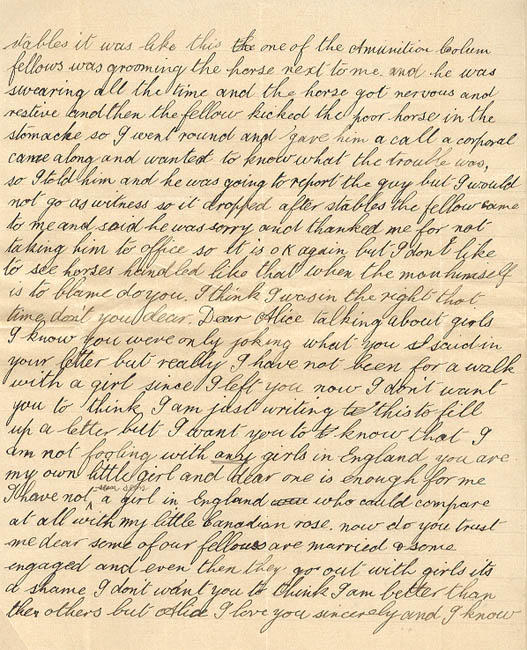 stables it was like this the one of the Amunition Colum
fellows was grooming the horse next to me and he was
swearing all the time and the horse got nervous and
restive and then the fellow kicked the poor horse in the
stomache so I went round and gave him a call a corporal
came along and wanted to know what the trouble was,
so I told him and he was going to report the guy but I would
not go as witness so it dropped after stables the fellow came
to me and said he was sorry and thanked me for not
taking him to office so it is ok again but I don't like
to see horses handled like that when the man himself
is to blame do you. I think I was in the right that
time, don't you dear. Dear Alice talking about girls
I know you were only joking what you said in
your letter but really I have not been for a walk
with a girl since I left you now I don't want
you to think I am just writing to this to fill
up a letter but I want you to k know that I
am not fooling with any girls in England you are
my own little girl and dear one is enough for me
I have not seen a girl in England who could compare
at all with my little Canadian rose. now do you trust
me dear some of our fellows are married & some
engaged and even then they go out with girls its
a shame I don't want you to think I am better than
then others but Alice I love you sincerely and I know